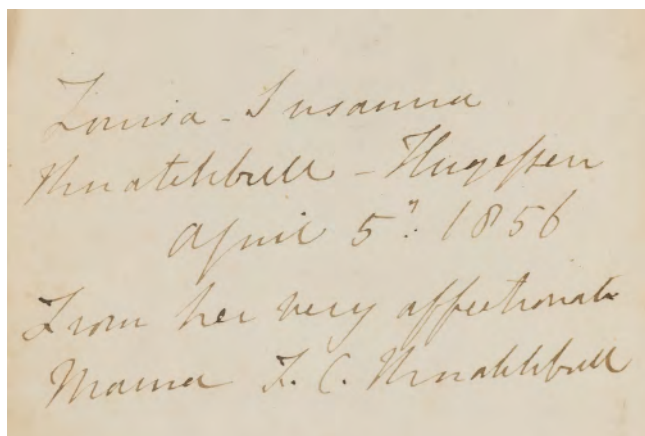 Louisa - Susanna
Knatchbull - Hugessen
April 5th. 1856
From her very affectionate
Mama F. C. Knatchbull